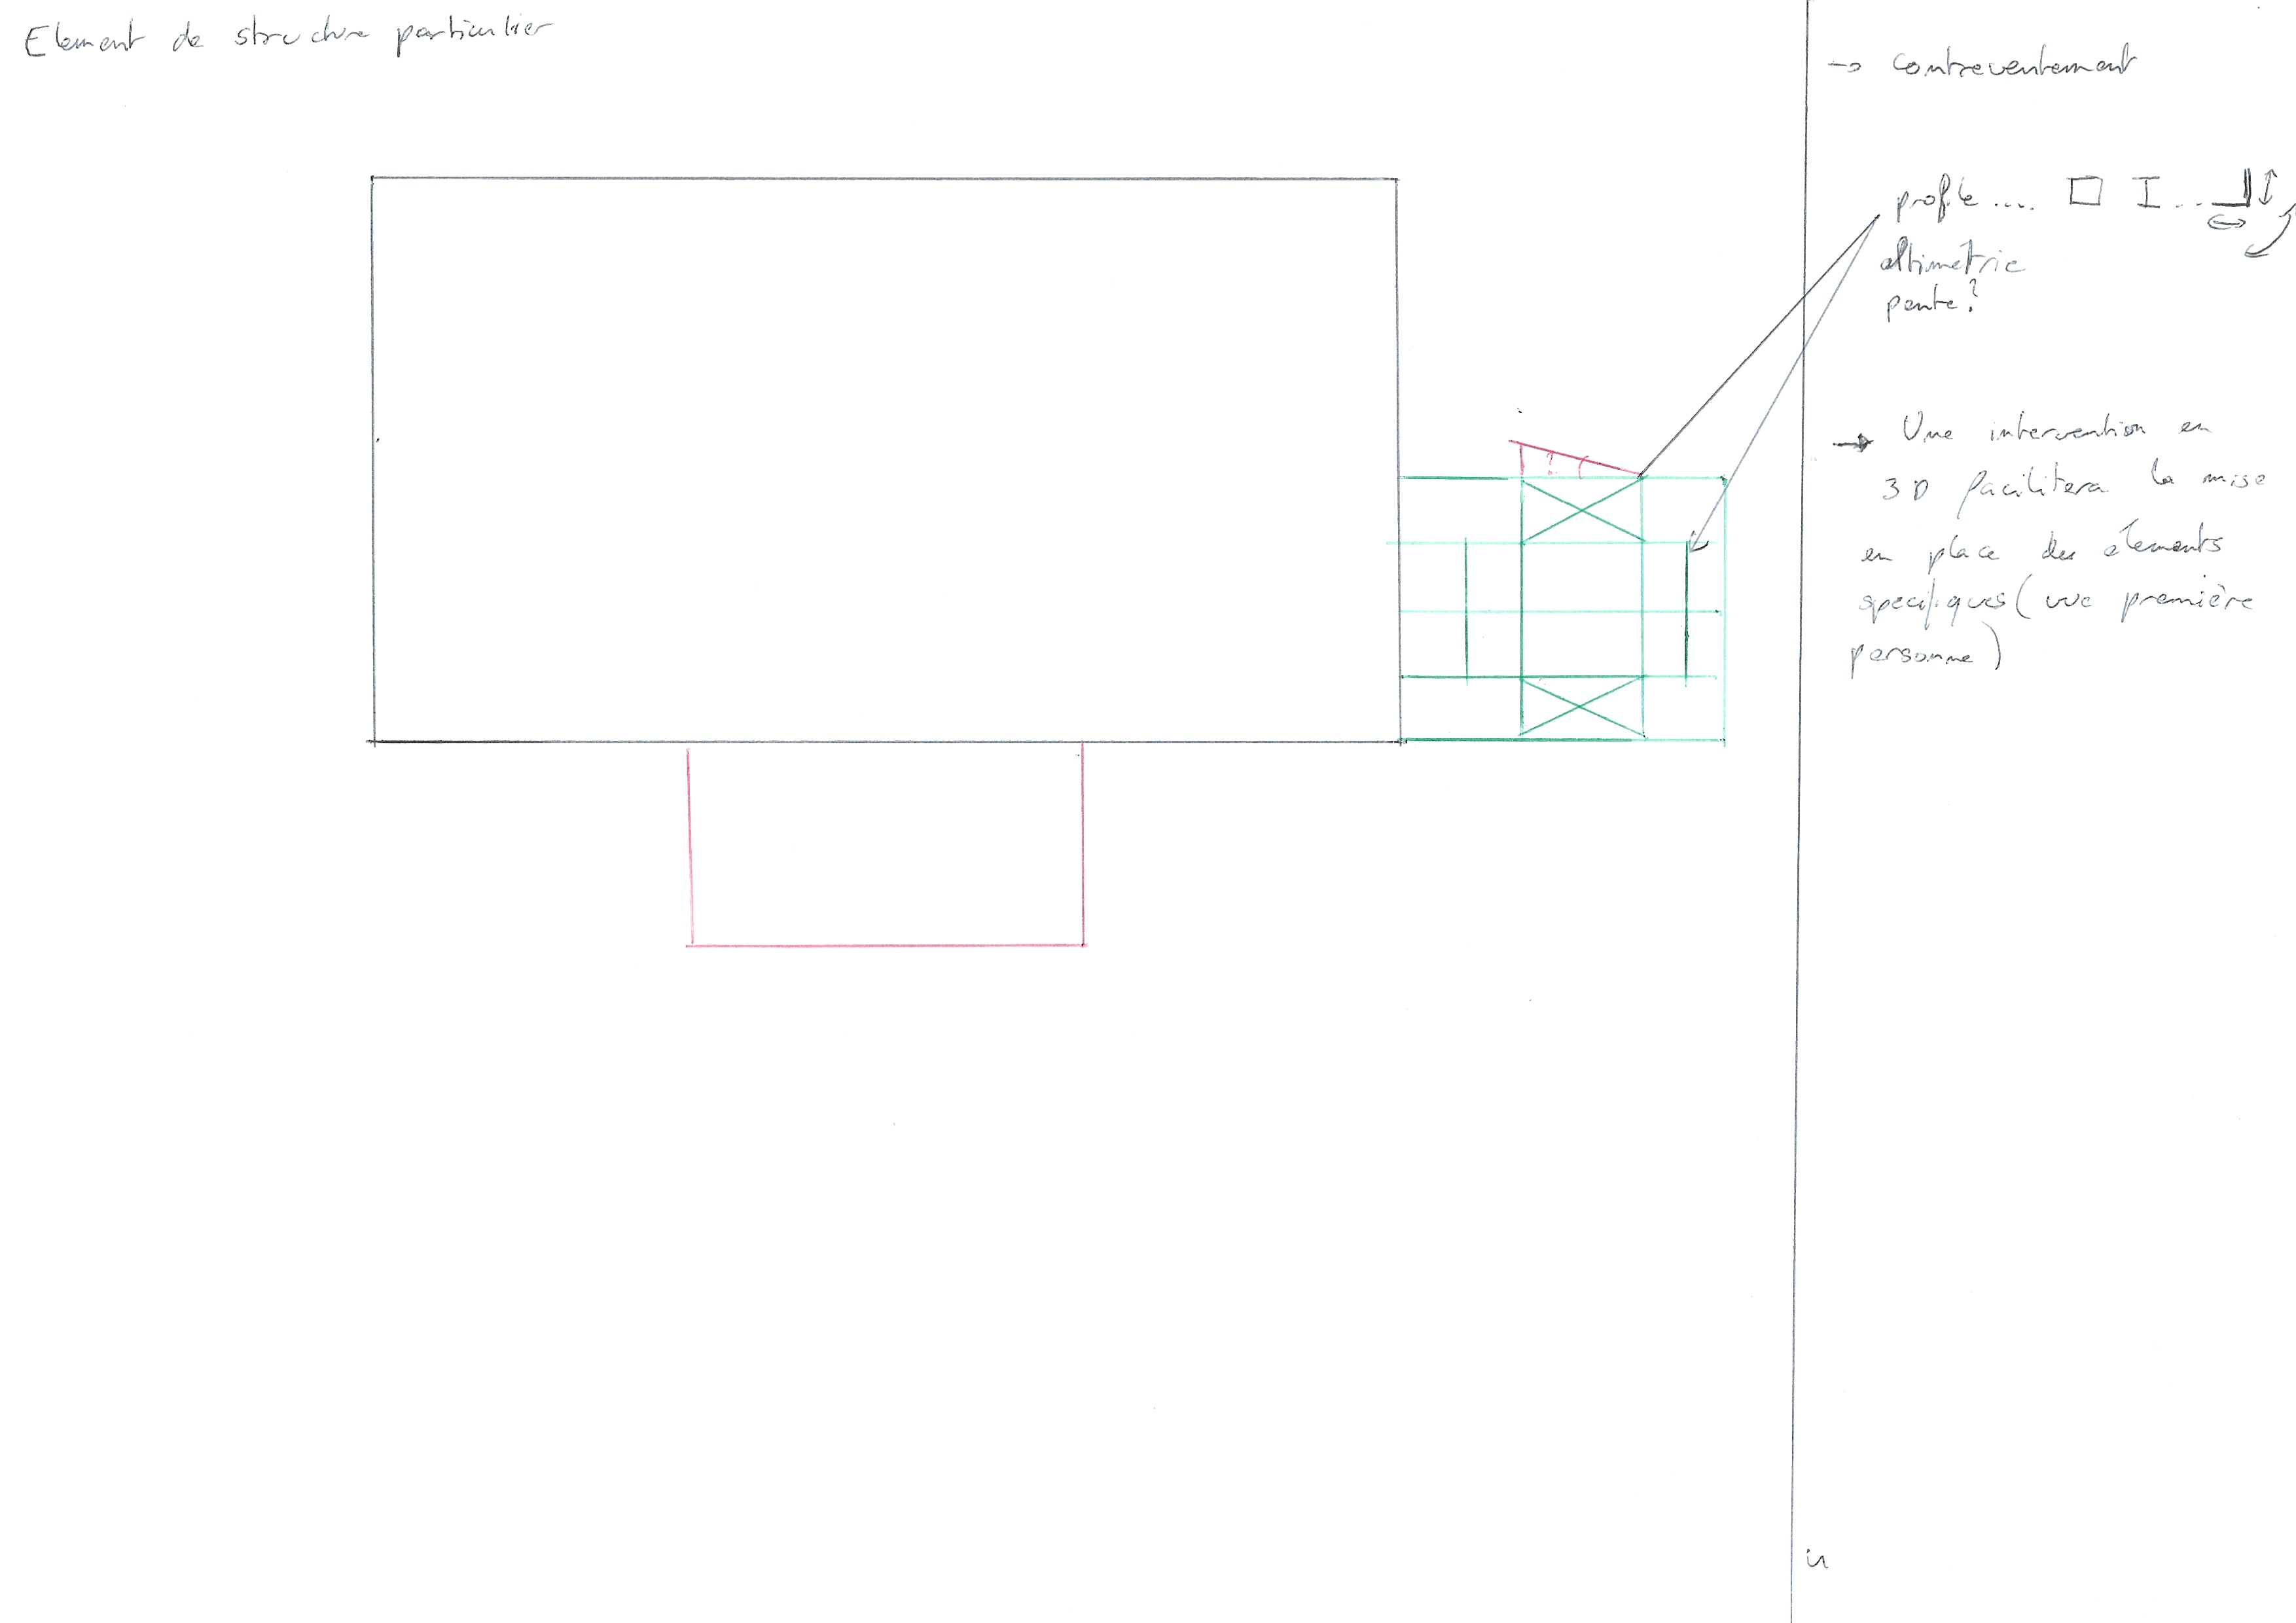 Element de structure particulier
→ contreventement
profile ....
altimetrie
pente?
→ Une intervention en
3D facilitera la mise
en place des elements
specifiques (vue première
personne)
?